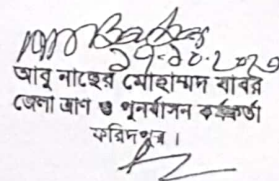 ২৭-১০-২০২০
আবু নাছের মোহাম্মদ বাবর
জেলা ত্রাণ ও পুনর্বাসন কর্মকর্তা
ফরিদপুর।